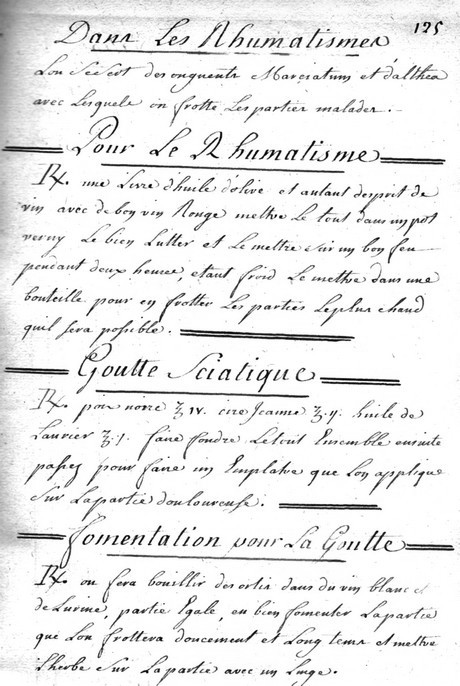 125
Dans Les Rhumatismes
Lon Se Sert des onguents Marciatum et d'althea
avec Lesquels on frotte Les parties malades.
Pour Le Rhumatisme
Rx. une Livre d'huile d'olive et autant desprit de
vin avec de bon vin Rouge mettre Le tout dans un pot
verny Le bien Lutter et Le mettre Sur un bon feu
pendant deux heures, etant froid Le mettre dans une
bouteille pour en frotter Les parties Le plus chaud
quil Sera possible.
Goutte Sciatique
Rx. poix noire ℥ IV. cire Jeaune ℥. ij. huile de
Laurier ℥. j. faire fondre Le tout Ensemble ensuite
passez pour faire un Emplatre que Lon applique
Sur La partie douloureuse.
fomentation pour La Goutte
Rx. on fera bouillir des ortis dans du vin blanc et
de Lurine, partie Egale, en bien fomenter La partie
que Lon frottera doucement et Long tems et mettre
L'herbe Sur La partie avec un Linge.